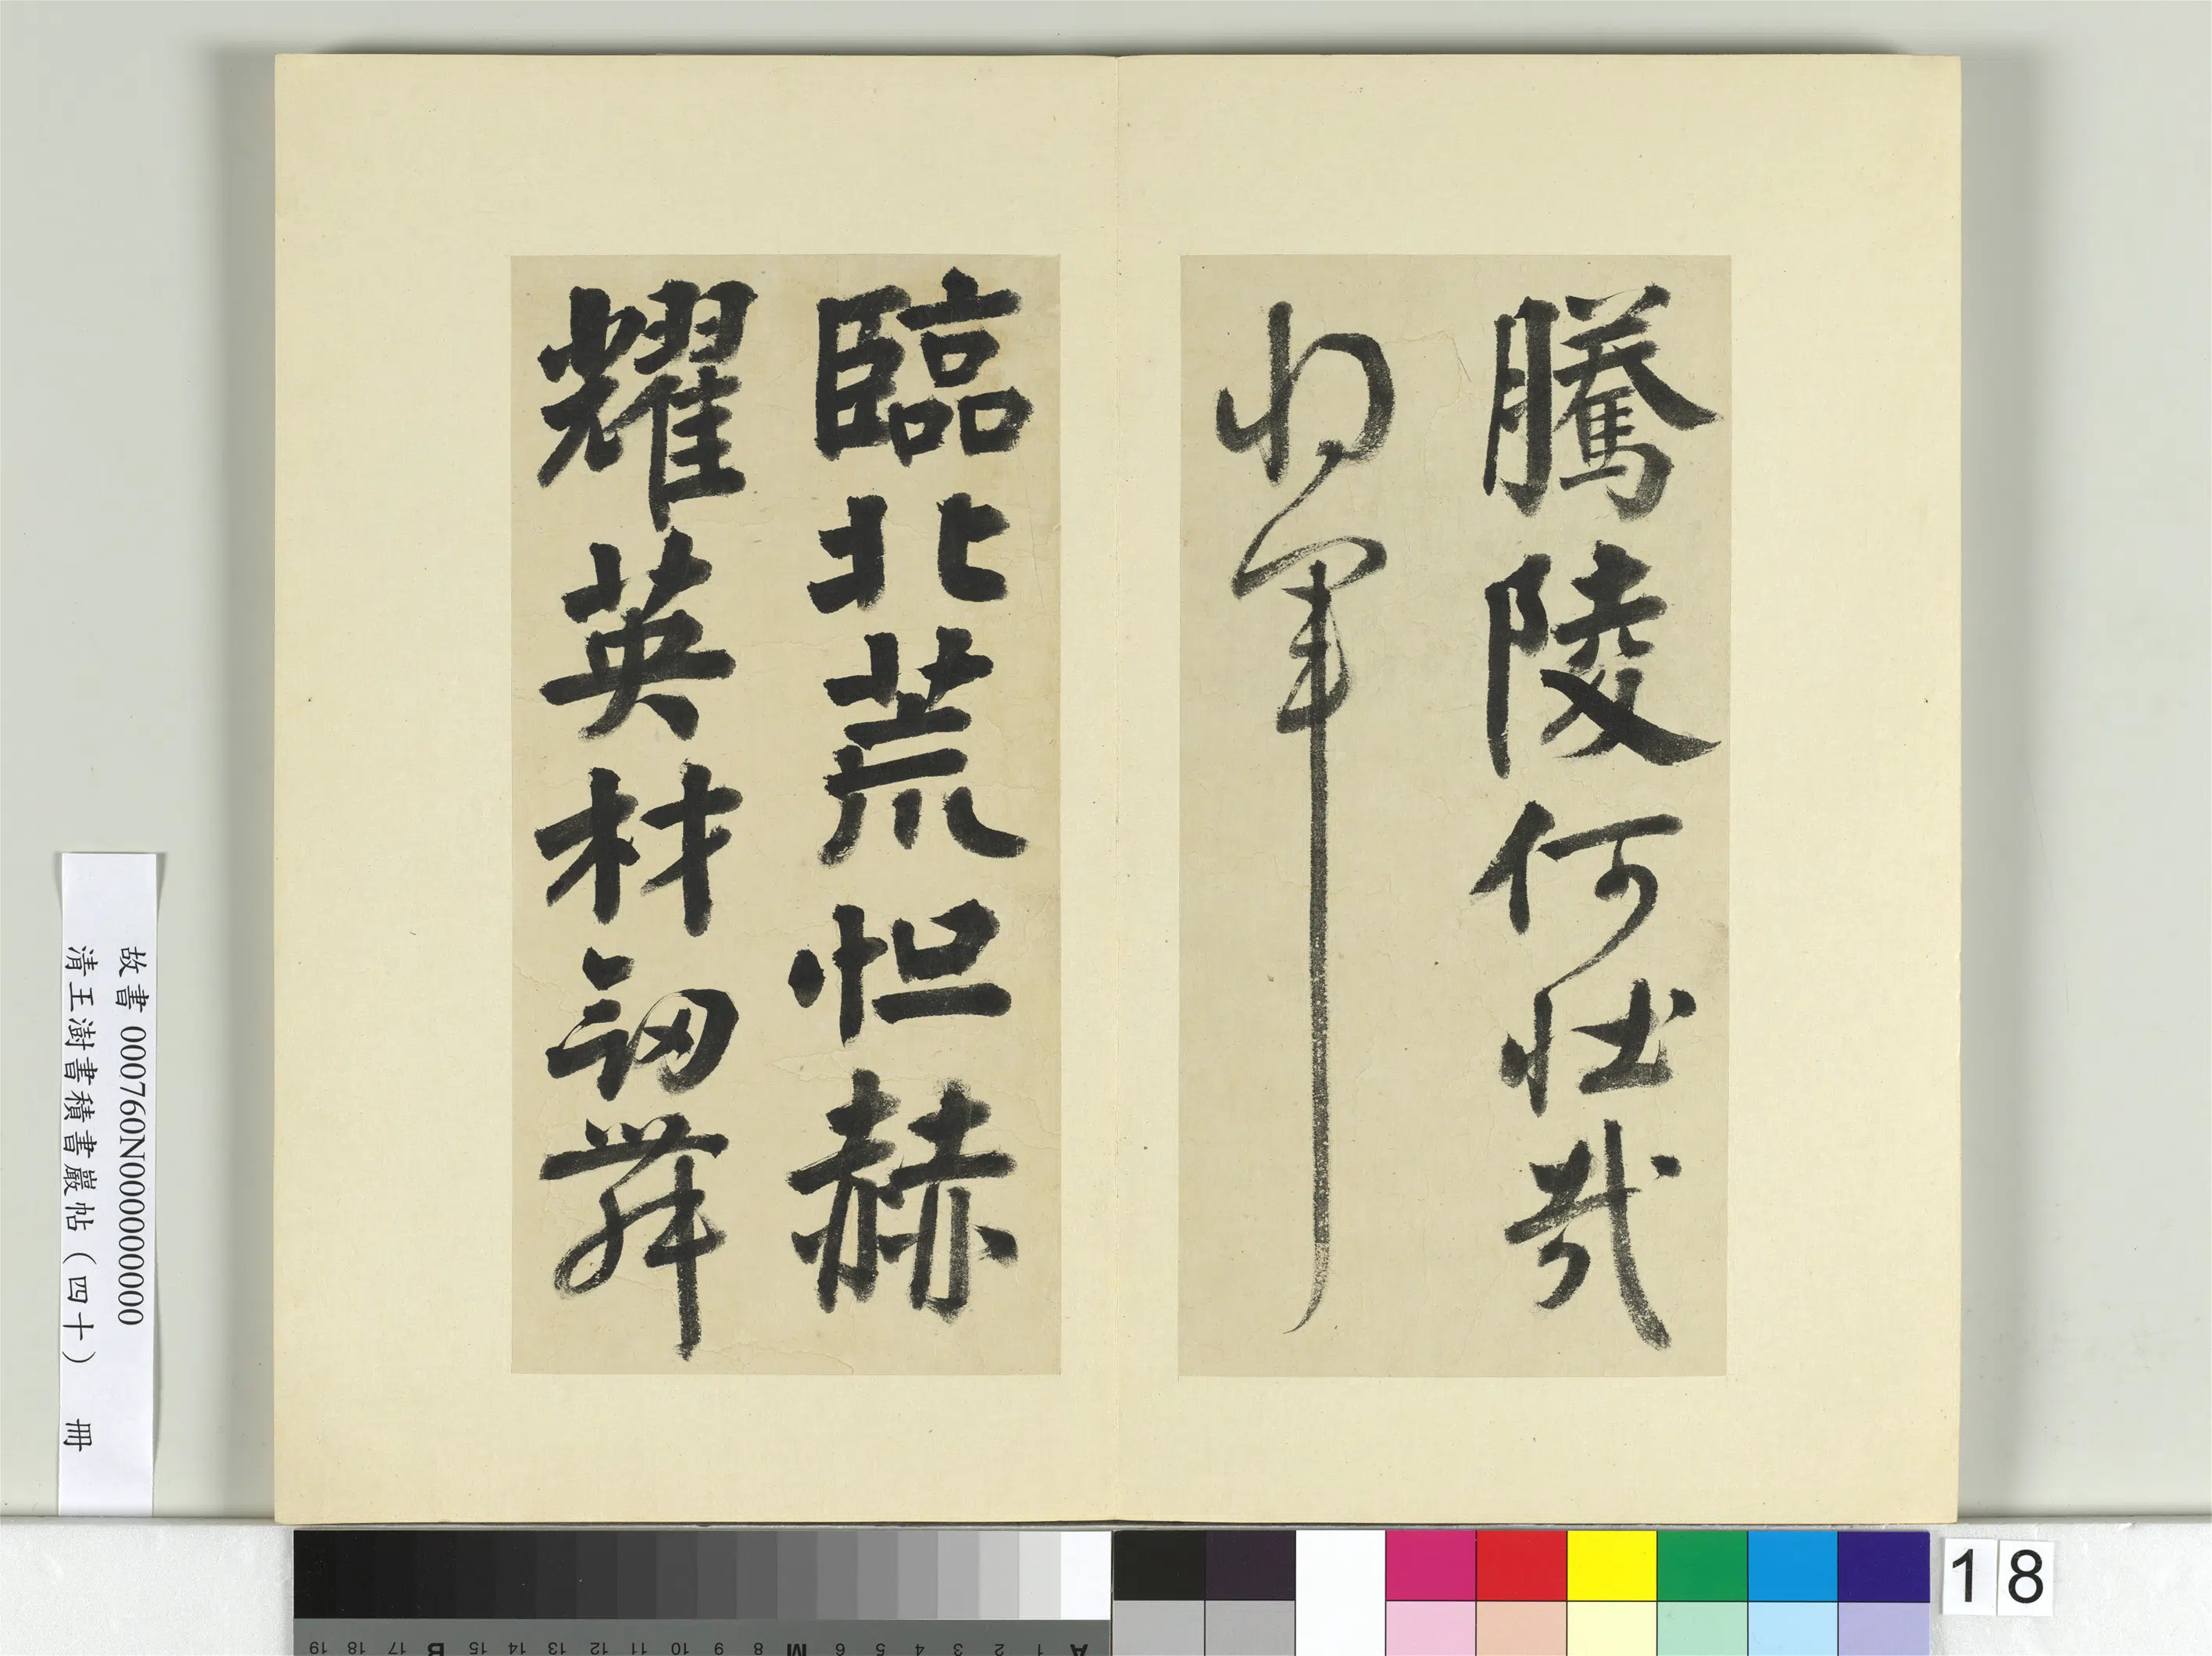 騰陵何壯哉
將軍
臨北荒怛赫
耀英材劒舞
故書 000760N000000000
清王澍書積書巖帖（四十） 冊
18
A 1 2 3 4 5 6 M 8 9 10 11 12 13 14 15 B 17 18 19